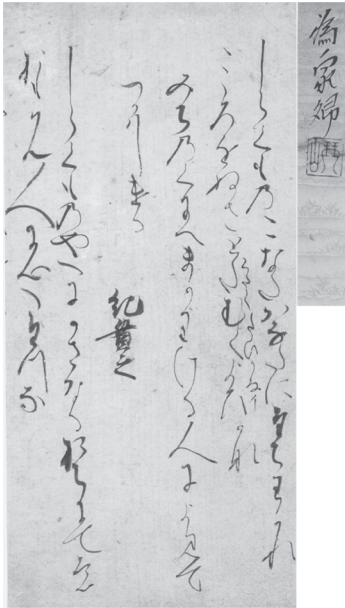 為家婦
琴山
しらくものこなたかなたにたちわかれ
こゝろをぬさと
みちのくにへまかりける人によみて
つかはしける
紀貫之
しらくものやへにかさなるをちにても
おもはん人に心へたつな